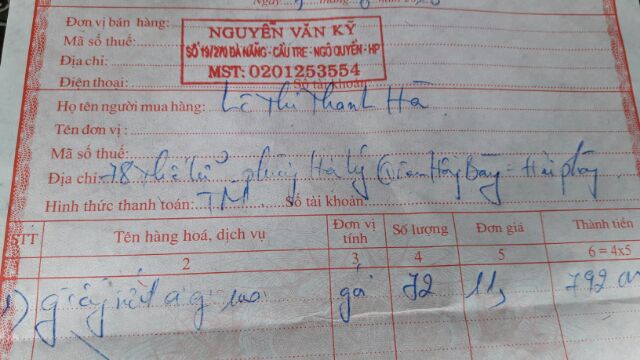 Ngày
Đơn vị bán hàng:
NGUYỄN VĂN KỶ
SỐ 19/270 ĐÀ NẴNG - CẦU TRE - NGÔ QUYỀN - HP
MST: 0201253554
Mã số thuế:
Địa chỉ:
Điện thoại: Số tài khoản
Họ tên người mua hàng: Lê Thị Thanh Hà
Tên đơn vị:
Mã số thuế:
Địa chỉ: 78 Thế Lữ phường Hạ Lý Quận Hồng Bàng - Hải phòng
Hình thức thanh toán: TM Số tài khoản
STT Tên hàng hoá, dịch vụ Đơn vị tính Số lượng Đơn giá Thành tiền
2 3 4 5 6 = 4x5
72 11, 792